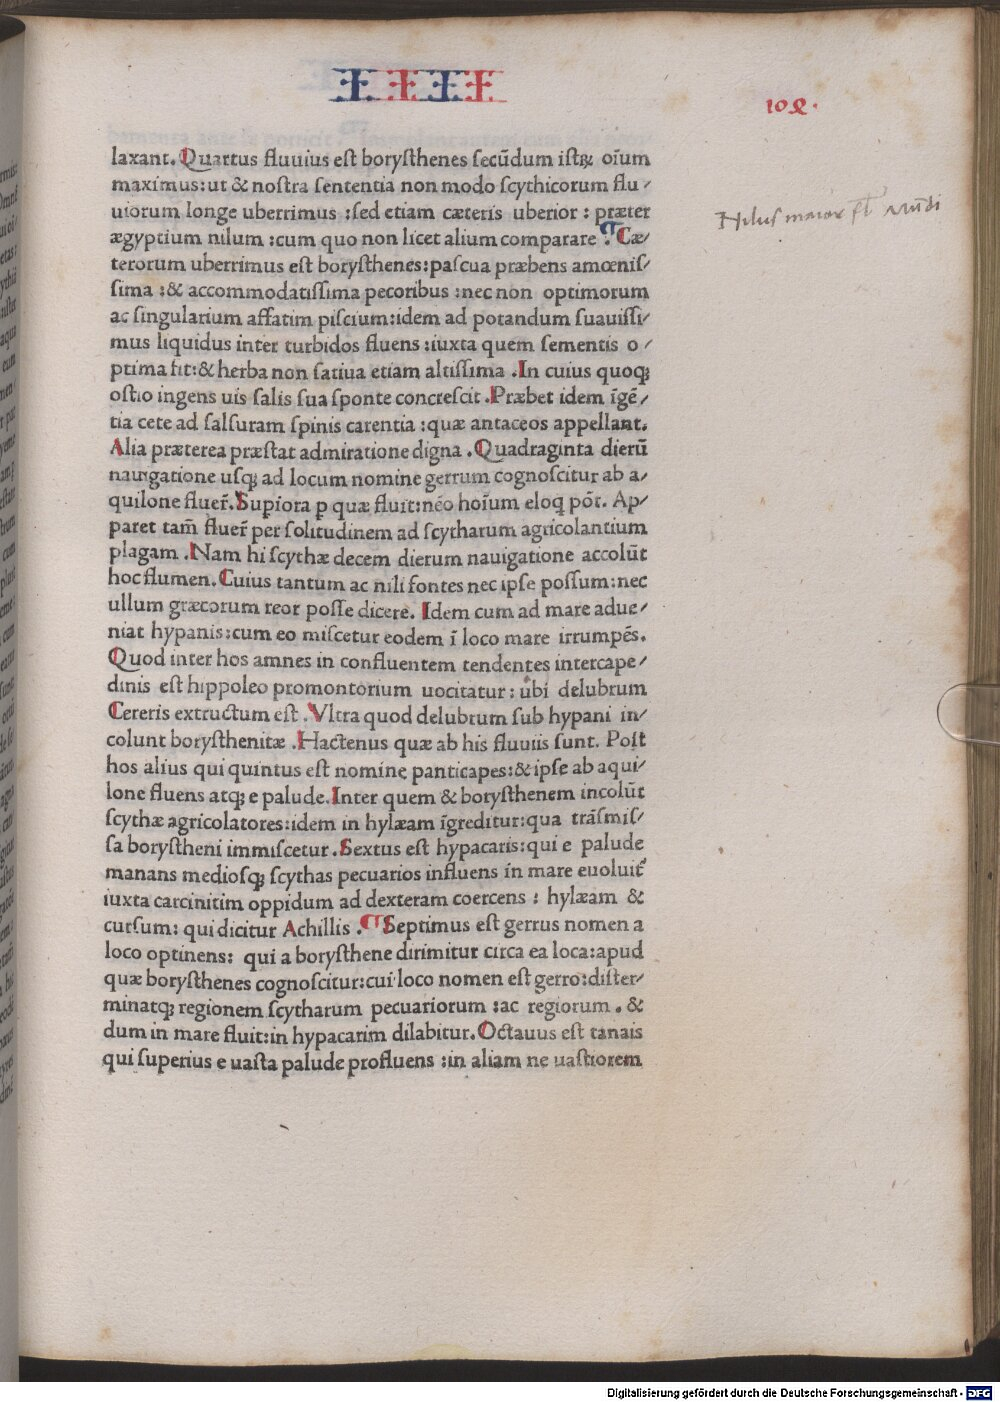 IIII
109.
laxant. Quartus fluuius eſt boryſthenes ſecūdum iſtꝝ oīum
maximus: ut & noſtra ſententia non modo ſcythicorum flu⸗
uiorum longe uberrimus :ſed etiam cæteris uberior : præter
ægyptium nilum :cum quo non licet alium comparare ¶ Cæ⸗
terorum uberrimus eſt boryſthenes:paſcua præbens amœniſ⸗
ſima :& accommodatiſſima pecoribus :nec non optimorum
ac ſingularium affatim piſcium:idem ad potandum ſuauiſſi⸗
mus liquidus inter turbidos fluens :iuxta quem ſementis o⸗
ptima fit:& herba non ſatiua etiam altiſſima .In cuius quoqꝫ
oſtio ingens uis ſalis ſua ſponte concreſcit .Præbet idem īgē⸗
tia cete ad ſalſuram ſpinis carentia :quæ antaceos appellant.
Alia præterea præſtat admiratione digna .Quadraginta dierū
nauigatione uſqꝫ ad locum nomine gerrum cognoſcitur ab a⸗
quilone fluer̄.Supiora ꝑ quæ fluit:nēo hoīum eloqꝫ pōt. Ap⸗
paret tam̄ fluer̄ per ſolitudinem ad ſcytharum agricolantium
plagam .Nam hi ſcythæ decem dierum nauigatione accolūt
hoc flumen. Cuius tantum ac nili fontes nec ipſe poſſum:nec
ullum græcorum reor poſſe dicere. Idem cum ad mare adue⸗
niat hypanis:cum eo miſcetur eodem ī loco mare irrumpēs.
Quod inter hos amnes in confluentem tendentes intercape⸗
dinis eſt hippoleo promontorium uocitatur: ubi delubrum
Cereris extructum eſt .Vltra quod delubrum ſub hypani in⸗
colunt boryſthenitæ .Hactenus quæ ab his fluuiis ſunt. Poſt
hos alius qui quintus eſt nomine panticapes:& ipſe ab aqui⸗
lone fluens atqꝫ e palude.Inter quem & boryſthenem incolūt
ſcythæ agricolatores:idem in hylæam īgreditur:qua trāſmiſ⸗
ſa boryſtheni immiſcetur .Sextus eſt hypacaris:qui e palude
manans medioſqꝫ ſcythas pecuarios influens in mare euoluit́
iuxta carcinitim oppidum ad dexteram coercens : hylæam &
curſum: qui dicitur Achillis .¶ Septimus eſt gerrus nomen a
loco optinens: qui a boryſthene dirimitur circa ea loca:apud
quæ boryſthenes cognoſcitur:cui loco nomen eſt gerro:diſter⸗
minatqꝫ regionem ſcytharum pecuariorum :ac regiorum . &
dum in mare fluit:in hypacarim dilabitur. Octauus eſt tanais
qui ſuperius e uaſta palude profluens :in aliam ne uaſtiorem
Nilus maior fl̄ Mūdi
Digitalisierung gefördert durch die Deutsche Forschungsgemeinschaft - DFG